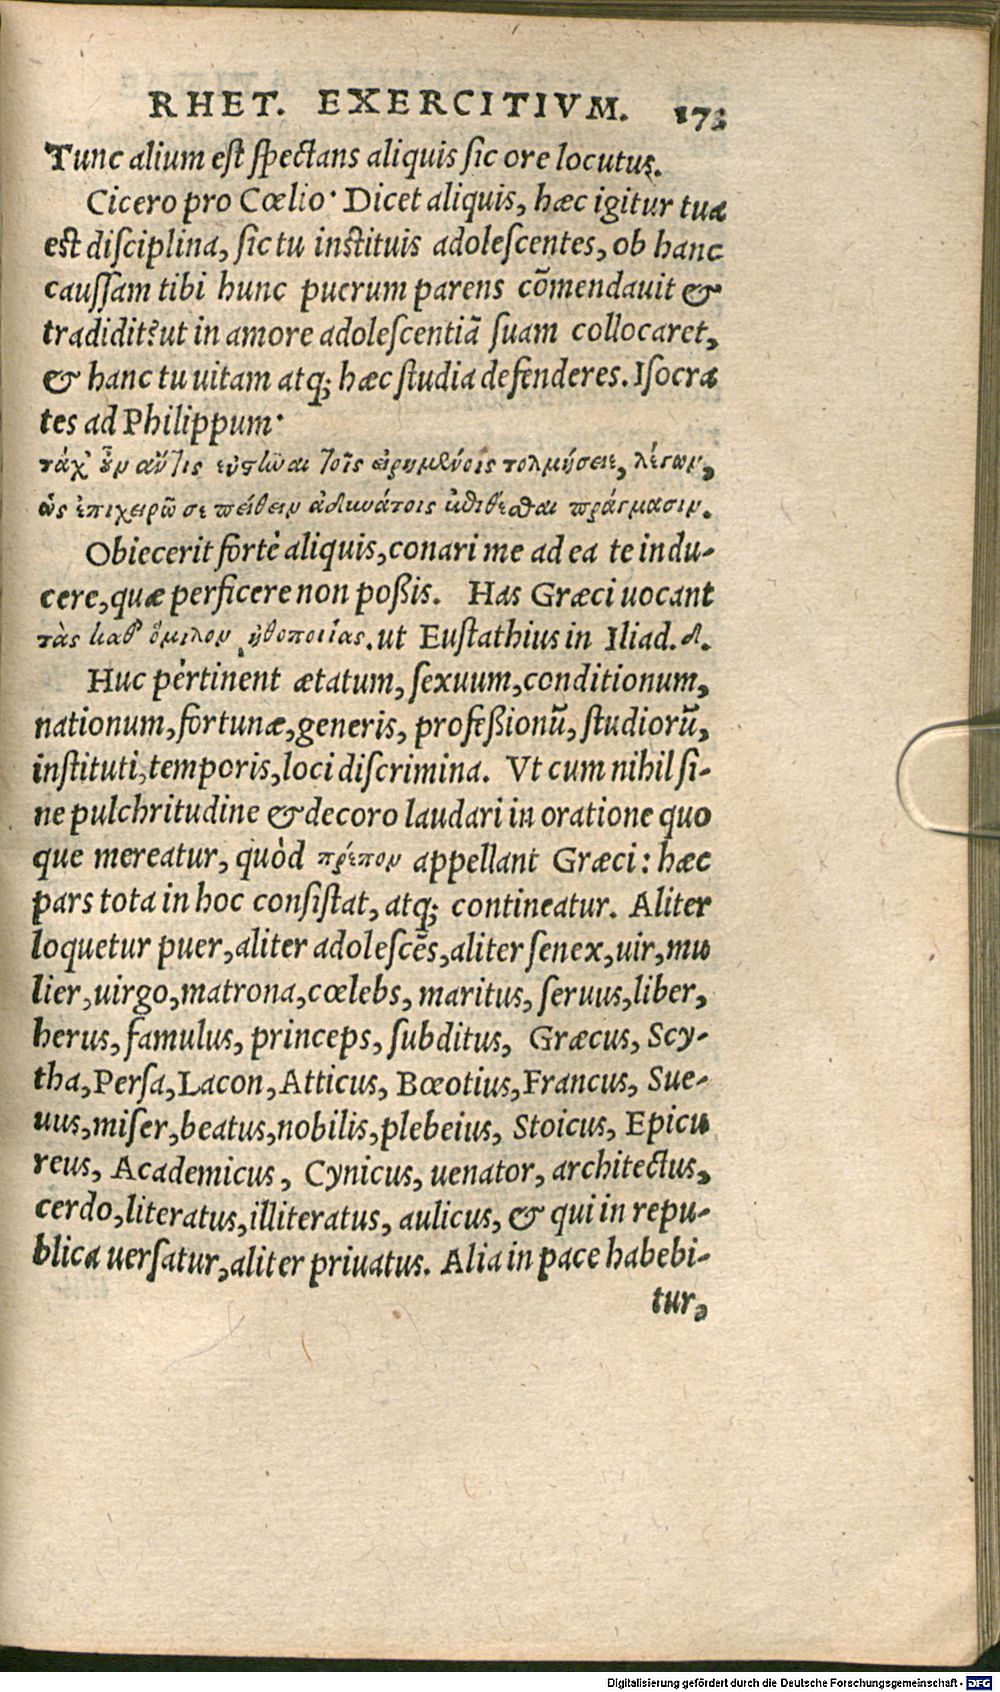 RHET. EXERCITIVM. 173
Tunc alium est spectans aliquis sic ore locutus.
Cicero pro Cœlio· Dicet aliquis, hæc igitur tua
est disciplina, sic tu instituis adolescentes, ob hanc
caussam tibi hunc puerum parens cōmendauit &
tradidit? ut in amore adolescentiā suam collocaret,
& hanc tu uitam atq; hæc studia defenderes. Isocra
tes ad Philippum·
τάχ' οὖν ἄν τις ἐνστῆναι τοῖς εἰρημένοις τολμήσειε, λέγων,
ὡς ἐπιχειρῶ σε πείθειν ἀδυνάτοις ἐπιθέσθαι πράγμασιν.
Obiecerit fortè aliquis, conari me ad ea te indu-
cere, quæ perficere non poßis. Has Græci uocant
τὰς καθ' ὅμιλον ἠθοποιίας. ut Eustathius in Iliad. δ.
Huc pertinent ætatum, sexuum, conditionum,
nationum, fortunæ, generis, profeßionū, studiorū,
instituti, temporis, loci discrimina. Vt cum nihil si-
ne pulchritudine & decoro laudari in oratione quo
que mereatur, quòd πρέπον appellant Græci: hæc
pars tota in hoc consistat, atq; contineatur. Aliter
loquetur puer, aliter adolescēs, aliter senex, uir, mu
lier, uirgo, matrona, cœlebs, maritus, seruus, liber,
herus, famulus, princeps, subditus, Græcus, Scy-
tha, Persa, Lacon, Atticus, Bœotius, Francus, Sue-
uus, miser, beatus, nobilis, plebeius, Stoicus, Epicu
reus, Academicus, Cynicus, uenator, architectus,
cerdo, literatus, illiteratus, aulicus, & qui in repu-
blica uersatur, aliter priuatus. Alia in pace habebi-
tur,
Digitalisierung gefördert durch die Deutsche Forschungsgemeinschaft - DFG